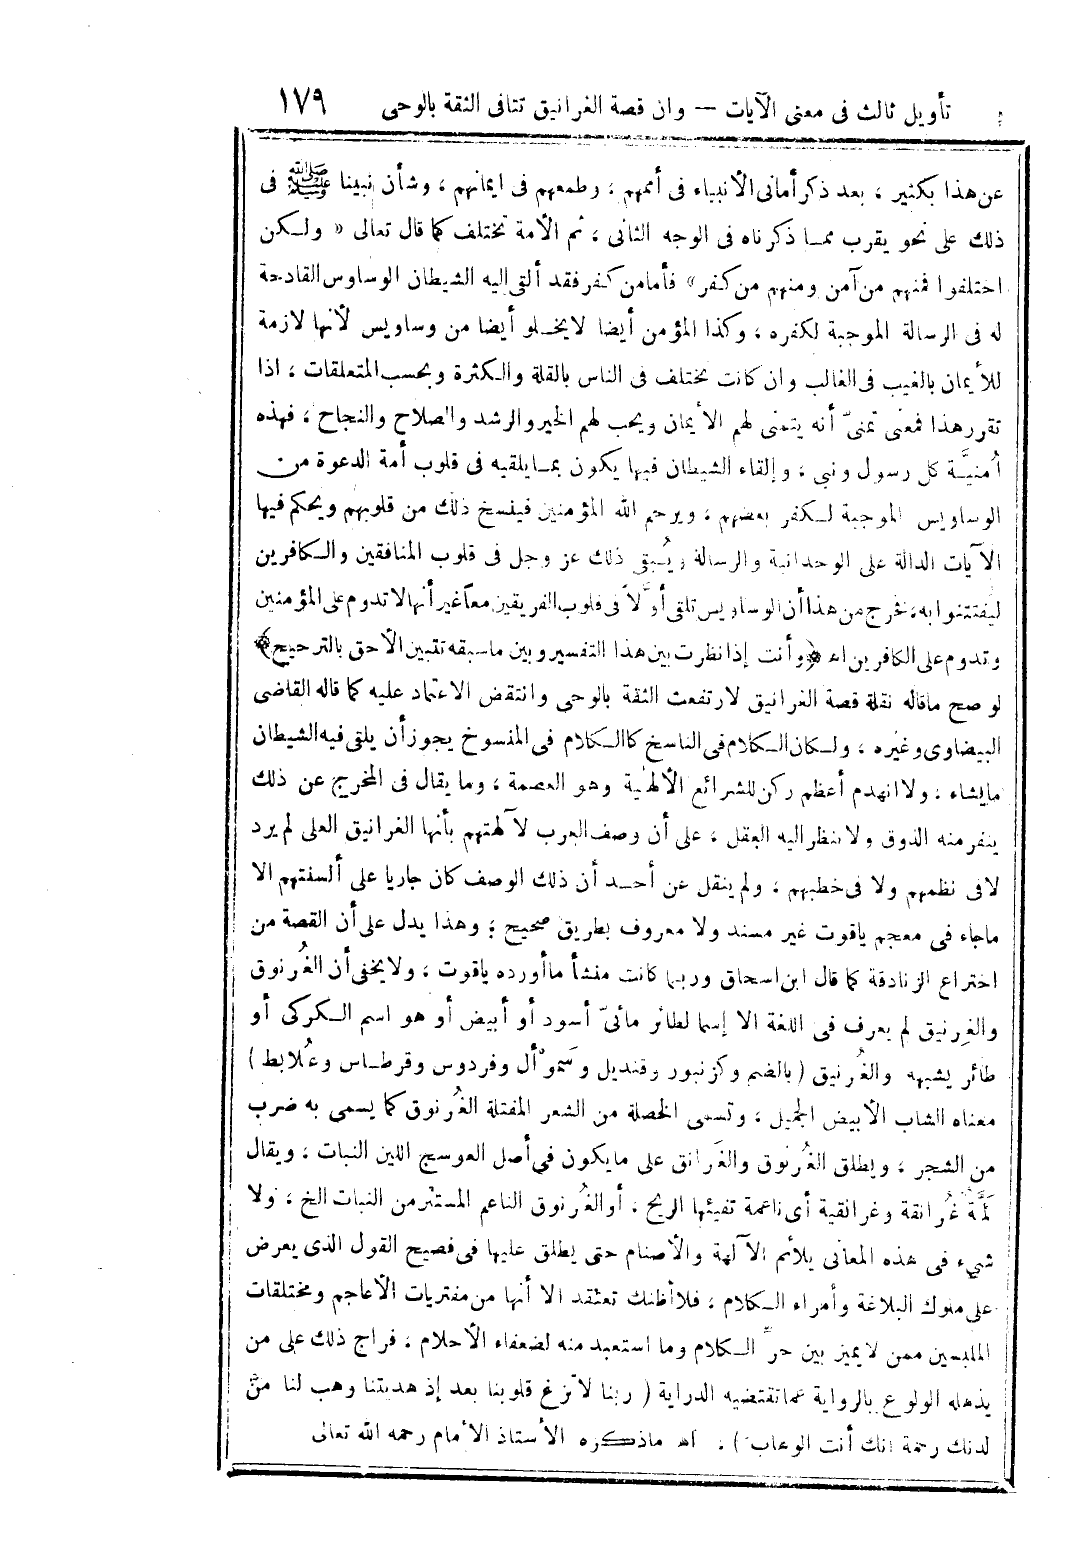 تأويل ثالث في معنى الآيات — وان قصة الغرانيق تنافى الثقة بالوحى ١٧٩
عن هذا بكثير ، بعد ذكر أماني الأنبياء فى أممهم ، وطمعهم فى ايمانهم ، وشأن نبينا ﷺ فى
ذلك على نحو يقرب ممـا ذكرناه فى الوجه الثانى ، ثم الأمة تختلف كما قال تعالى « ولـكن
اختلفوا فمنهم من آمن ومنهم من كفر » فأمامن كفر فقد ألقى اليه الشيطان الوساوس القادحة
له فى الرسالة الموجبة لكفره ، وكذا المؤمن أيضا لايخـلو أيضا من وساويس لأنها لازمة
للأيمان بالغيب فى الغالب وان كانت تختلف فى الناس بالقلة والـكثرة وبحسب المتعلقات ، اذا
تقرر هذا فمعنى تمنىّ أنه يتمنى لهم الأيمان ويحب لهم الخير والرشد والصلاح والنجاح ، فهذه
أمنيَّـة كل رسول ونبى ، وإلقاء الشيطان فيها يكون بمـا يلقيه فى قلوب أمة الدعوة من
الوساويس الموجبة لـكفر بعضهم ، ويرحم الله المؤمنين فينسخ ذلك من قلوبهم ويحكم فيها
الآيات الدالة على الوحدانية والرسالة ويُبقى ذلك عز وجل فى قلوب المنافقين والـكافرين
ليفتتنوا به ، فخرج من هذا أن الوساويس تلقى أوَّلاً فى قلوب الفريقين معاً غير أنها لاتدوم على المؤمنين
وتدوم على الكافرين اه ﴿وأنت إذا نظرت بين هذا التفسير وبين ماسبقه تتبين الأحق بالترجيح﴾
لو صح ماقاله نقلة قصة الغرانيق لارتفعت الثقة بالوحى وانتقض الاعتماد عليه كما قاله القاضى
البيضاوى وغيره ، ولـكان الـكلام فى الناسخ كالـكلام فى المنسوخ يجوز أن يلقى فيه الشيطان
مايشاء ، ولا انهدم أعظم ركن للشرائع الألهية وهو العصمة ، وما يقال فى المخرج عن ذلك
ينفر منه الذوق ولا ينظر اليه العقل ، على أن وصف العرب لآلهتهم بأنها الغرانيق العلى لم يرد
لافى نظمهم ولا فى خطبهم ، ولم ينقل عن أحـد أن ذلك الوصف كان جاريا على ألسنتهم الا
ماجاء فى معجم ياقوت غير مسند ولا معروف بطريق صحيح ؛ وهذا يدل على أن القصة من
اختراع الزنادقة كما قال ابن اسحاق وربمـا كانت منشأ ماأورده ياقوت ، ولا يخفى أن الغُرنوق
والغرنيق لم يعرف فى اللغة الا إسما لطائر مائىّ أسود أو أبيض أو هو اسم الـكركى أو
طائر يشبهه والغُرنيق ( بالضم وكزنبور وقنديل وسَموأل وفردوس وقرطـاس وعُلابط )
معناه الشاب الأبيض الجميل ، وتسمى الخصلة من الشعر المفتلة الغرُنوق كما يسمى به ضرب
من الشجر ، ويطلق الغُرنوق والغَرانق على مايكون فى أصل العوسج اللين النبات ، ويقال
لَمةٌ غُرانقة وغرانقية أى ناعمة تفيئها الريح ، أو الغُرنوق الناعم المستتر من النبات الخ ، ولا
شىء فى هذه المعانى يلائم الآلهة والأصنام حتى يطلق عليها فى فصيح القول الذى يعرض
على ملوك البلاغة وأمراء الـكلام ، فلا أظنك تعتقد الا أنها من مفتريات الأعاجم ومختلقات
الملبسين ممن لايميز بين حرِّ الـكلام وما استعبد منه لضعفاء الأحلام ، فراج ذلك على من
يذهله الولوع بالرواية عما تقتضيه الدراية ( ربنا لاتزغ قلوبنا بعد إذ هديتنا وهب لنا من
لدنك رحمة انك أنت الوهاب ) ، اهـ ماذكره الأستاذ الأمام رحمه الله تعالى